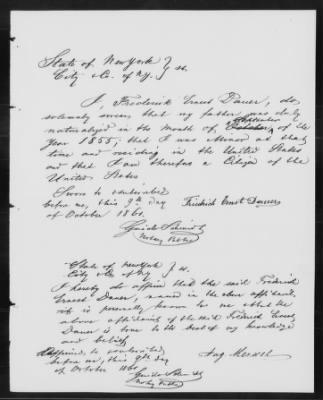 State of New York } ss.
City & C. of N.Y.
I, Frederick Ernst Dauer, do
solemnly swear, that my father was duly
naturalized in the month of, September
October, of the
Year 1855, that I was a Minor at that
time and residing in the United States
and that I am therefore a Citizen of the
United States
Sworn to & subscribed
before me, this 9th day
of October 1860.
Friedrich Ernst
Notary Public
State of New York } ss.
City & C. of N.Y.
I hereby do affirm that the said Frederick
Ernst Dauer, named in the above affidavit,
is personally known to me & that the
above affidavit of the said Frederick Ernst
Dauer is true to the best of my knowledge
and belief.
Affirmed, & subscribed
before me, this 9th day
of October 1860
Aug.
Notary Public